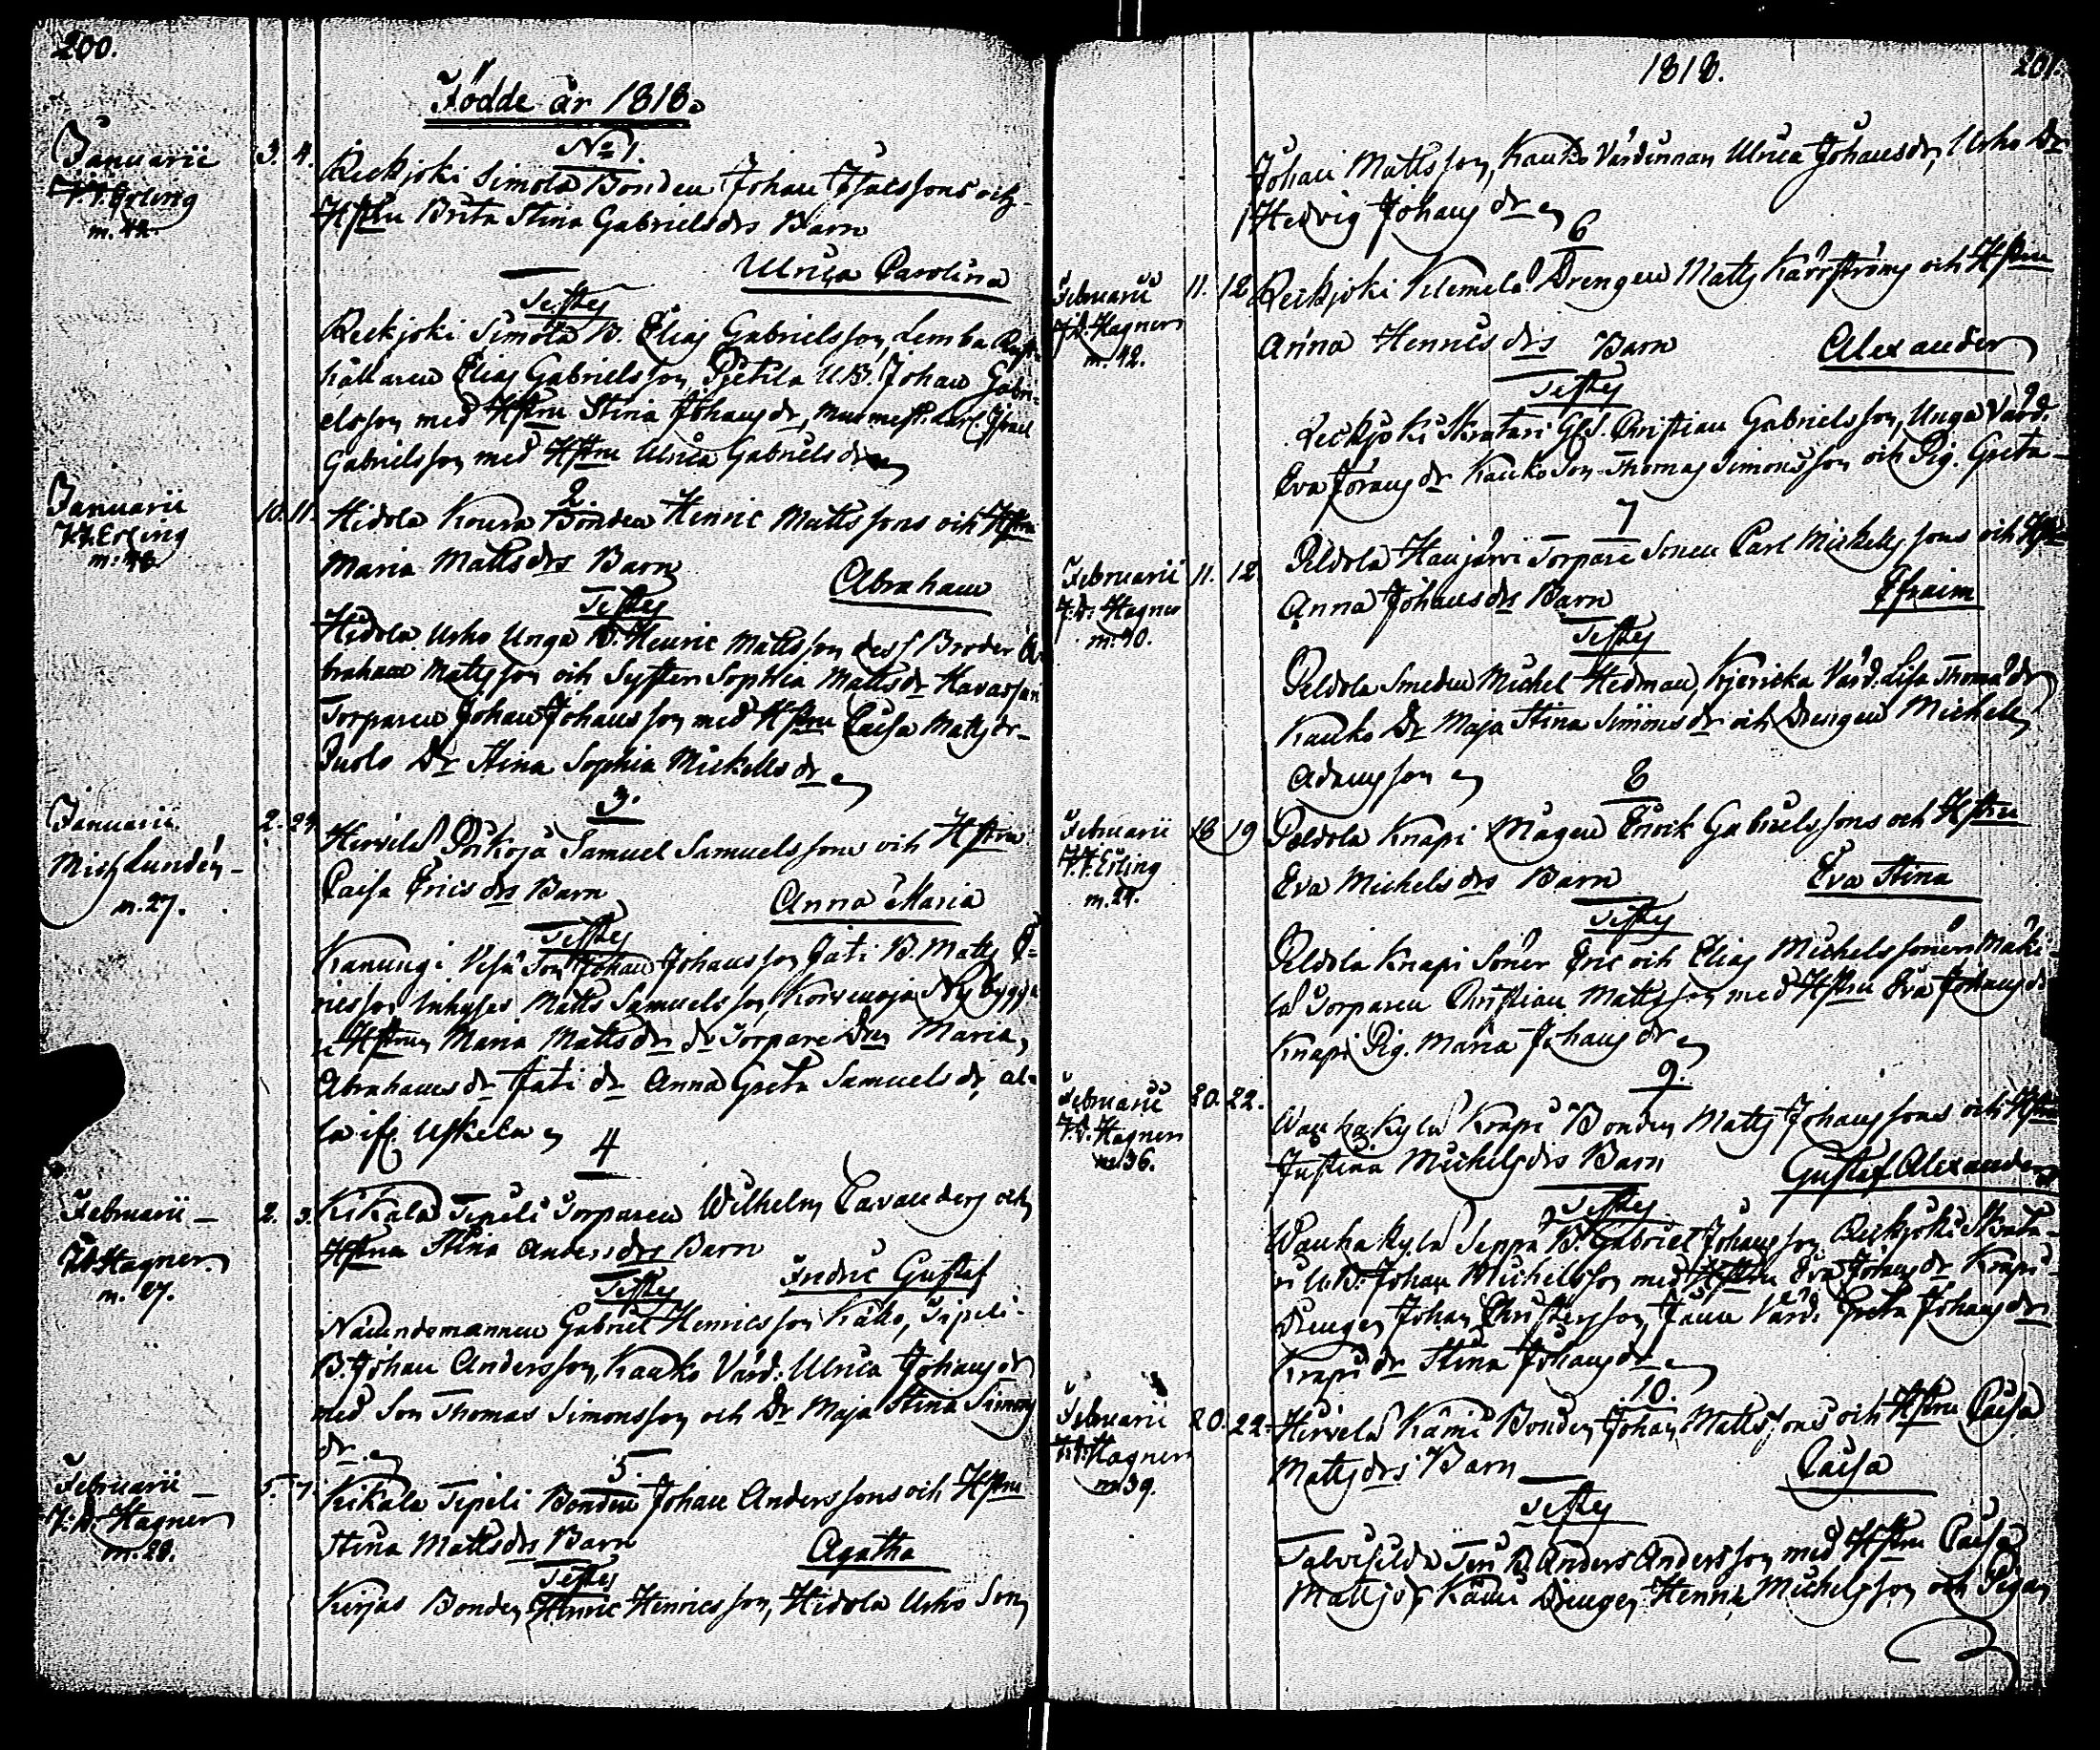 200.
Födde år 1818.
Januarii 3. 4.
J. J. Erling
m. 42.
No 1.
Reekjoki Simola Bonden Johan Isacssons och
Hstru Brita Stina Gabrielsdrs Barn
Ulrica Carolina
Testes
Reekjoki Simola B. Elias Gabrielsson, Lemba Rust-
hållaren Elias Gabrielsson, Pjetila U.B. Johan Gabri-
elsson med Hstru Stina Johansdr, Israel
Gabrielsson med Hstru Ulrica Gabrielsdr
Januarii 10. 11.
J. J. Erling
m.
2.
Hidola Koura Bonden Henric Mattssons och Hstru
Maria Mattsdrs Barn
Abraham
Testes
Hidola Usko Unga B. Henric Mattsson dess Broder A-
braham Mattsson och Systern Sophia Mattsdr
Torparen Johan Johansson med Hstru Caisa Mattsdr
Dr Stina Sophia Mickellsdr
Januarii 2. 24.
Mich Lundén
m. 27.
3.
Hirvelä Samuel Samuelssons och Hstru
Caisa Ericsdrs Barn
Anna Maria
Testes
Kanungi Son Johan Johansson Jati B. Matts E-
ricsson Inhyses Matts Samuelsson, Korvenoja Nybygga-
re Hstrun Maria Mattsdr Torpare Dren Maria
Abrahamsdr Jati dr Anna Greta Samuelsdr al-
la ifr. Uskela
Februarii 2. 3.
J. D. Hagner
m. 27.
4
Kikala Tipeli Torparen Wilhelm Cavanders och
Hstrun Stina Andersdrs Barn
Fredric Gustaf
Testes
Nämndemannen Gabriel Henricsson Käko, Tipeli
B. Johan Andersson, Kauko Värd: Ulrica Johansdr
med Son Thomas Simonsson och Dr Maja Stina Simons
dr
Februarii 5. 7.
J. D. Hagner
m. 28.
5.
Kikala Tipeli Bonden Johan Anderssons och Hstru
Stina Mattsdrs Barn
Agatha
Testes
Kirjas Bonden Henric Henricsson, Hidola Usko Son
1818.
201.
Johan Mattsson, Kauko Värdinnan Ulrica Johansdr, Usko Dr
Hedvig Johansdr
Februarii 11. 12
J. D. Hagner
m. 42.
6
Reekjoki Klemelä Drengen Matts Karrströms och Hstru
Anna Henricsdrs Barn
Alexander
Testes
Reekjoki Skratari Christian Gabrielsson, Unga Värd.
Eva Göransdr Kauko Son Thomas Simonsson och Pig. Greta
Februarii 11. 12
J. D. Hagner
m. 40.
7
Peldola Haujärvi Torpare Sonen Carl Mickelssons och Hstru
Anna Johansdrs Barn
Efraim
Testes
Peldola Smeden Michel Hedman, Värd. Lisa Thomædr
Kauko Dr Maja Stina Simonsdr och Drengen Michell
Adamsson
Februarii 18 19
J. J. Erling
m. 24.
8
Peldola Knapi Mågen Enrik Gabrielssons och Hstru
Eva Michelsdrs Barn
Eva Stina
Testes
Peldola Knapi Söner Eric och Elias Michelssöner Mäki-
lä Torparen Christian Mattsson med Hstru Eva Johansdr
Knapi Pig. Maria Johansdr
Februarii 20. 22.
J. D. Hagner
m 36.
9.
Wanhakylä Knapi Bonden Matts Johanssons och Hstru
Justina Michelsdrs Barn
Gustaf Alexander
Testes
Wanhakylä Seppä B. Gabriel Johansson Reekjoki Skrata-
ri U.B. Johan Michelsson med Hstru Eva Johansdr Knapi
Drengen Johan Christersson, Värd: Greta Johansdr
Knapi dr Stina Johansdr
Februarii 20. 22.
J. D. Hagner
m 39.
10.
Hirvelä Kämi Bonden Johan Mattssons och Hstru Caisa
Mattsdrs Barn
Caisa
Testes
B. Anders Andersson med Hstru Caisa
Mattsdr Kämi Drengen Henric Michelsson och Pigan